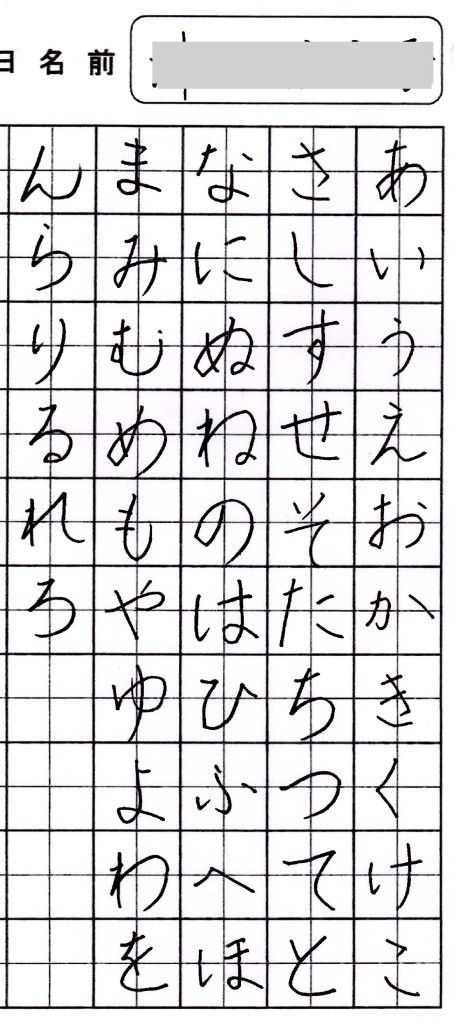 日 名 前
あいうえおかきくけこ
さしすせそたちつてと
なにぬねのはひふへほ
まみむめもやゆよわを
んらりるれろ